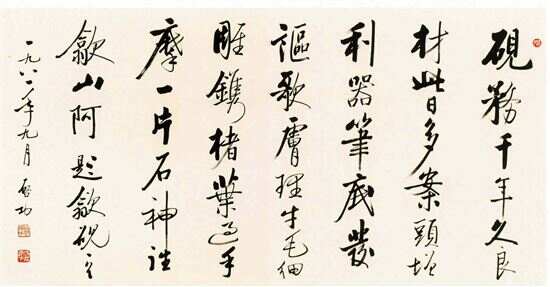 硯務千年久良
材此日多案頭增
利器筆底發
謳歌膚理牛毛細
雕鐫楮葉過手
摩一片石神往
歙山阿題歙硯之
一九八二年九月 啟功